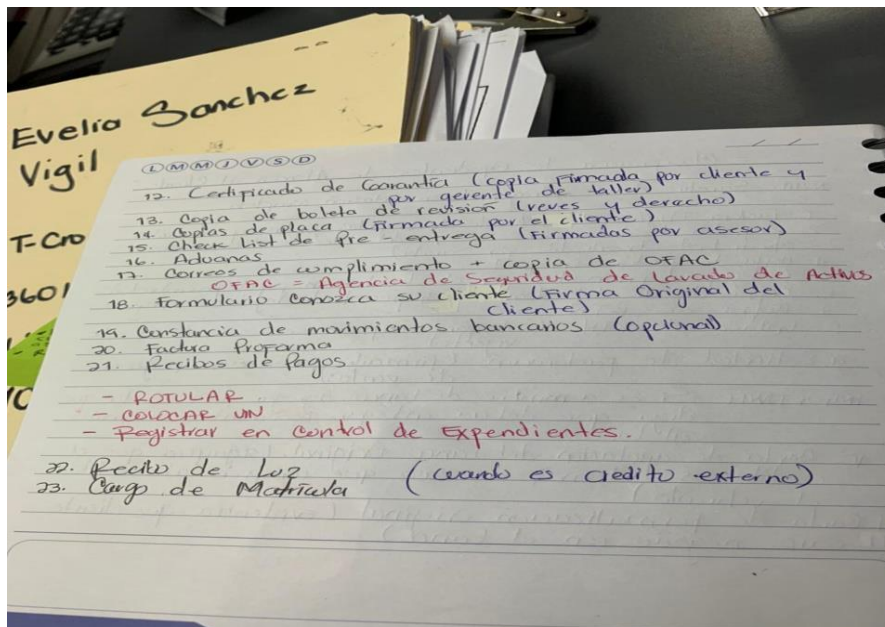 Evelia Sanchez
Vigil
T-Cro
3601
L M M J V S D
12. Certificado de Garantía (copia Firmada por cliente y
por gerente de taller)
13. Copia de boleta de revisión (reves y derecho)
14. Copias de placa (Firmada por el cliente)
15. Check List de Pre-entrega (Firmadas por asesor)
16. Aduanas
17. Correos de cumplimiento + copia de OFAC
OFAC = Agencia de Seguridad de Lavado de Activos
18. Formulario Conozca su cliente (Firma Original del
cliente)
19. Constancia de movimientos bancarios (opcional)
20. Factura Proforma
21. Recibos de Pagos
- ROTULAR
- COLOCAR VIN
- Registrar en Control de Expendientes.
22. Recibo de Luz (cuando es credito externo)
23. Cargo de Matrícula